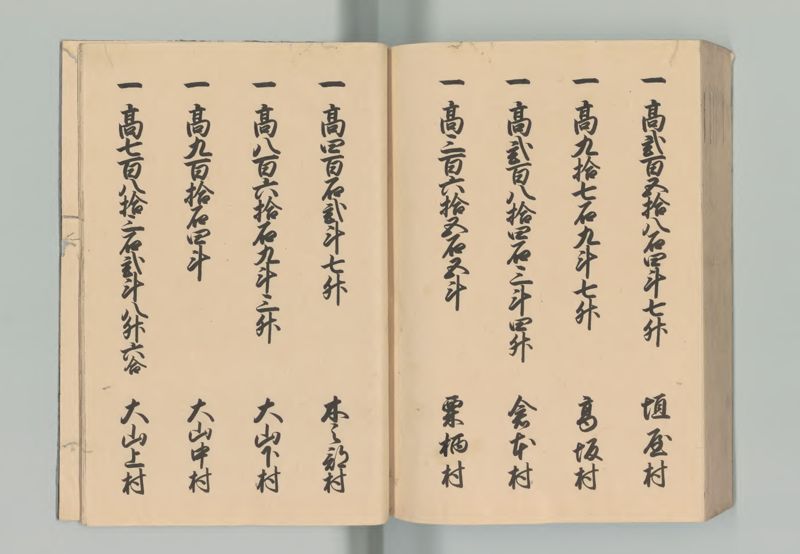 一 高弐百五拾八石四斗七升 垣屋村
一 高九拾七石九斗七升 高坂村
一 高弐百八拾四石三斗四升 倉本村
一 高三百六拾五石五斗 栗柄村
一 高四百石弐斗七升 木之部村
一 高八百六拾石九斗三升 大山下村
一 高九百拾石四斗 大山中村
一 高七百八拾三石弐斗八升六合 大山上村